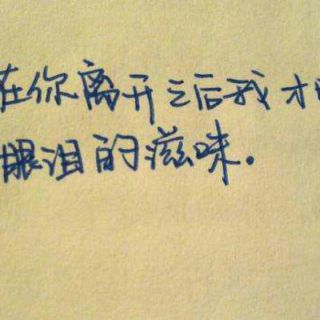 在你离开之后我才
眼泪的滋味.